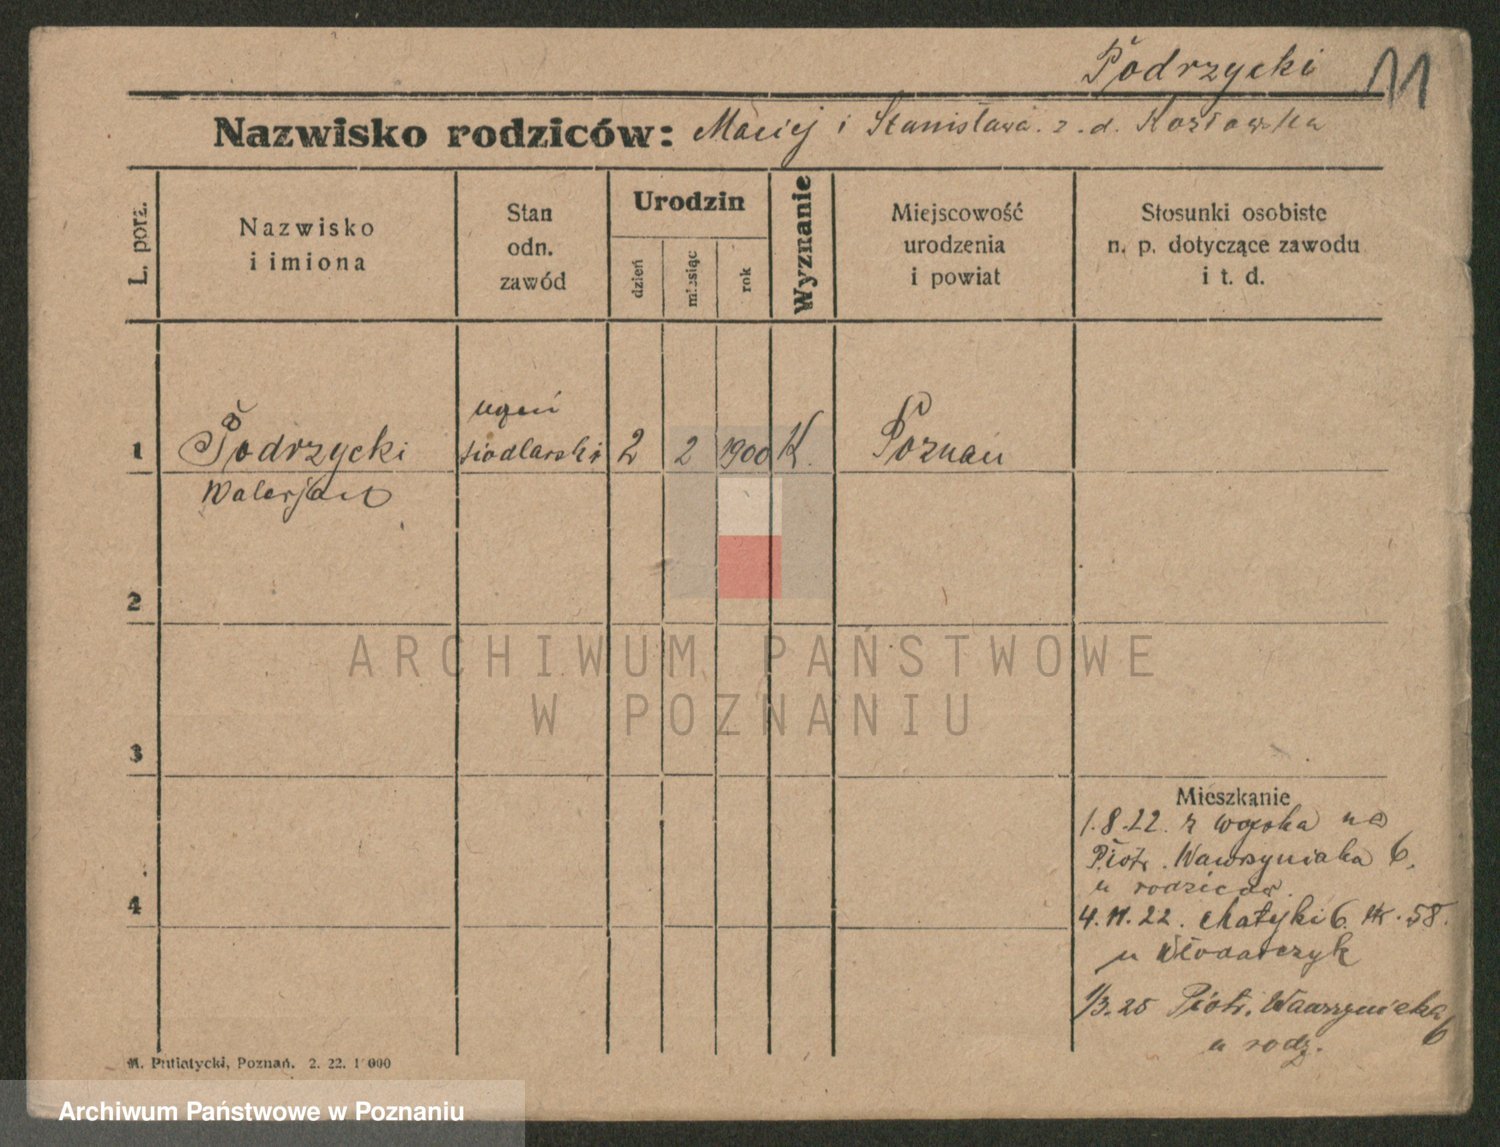 Podrzycki 11
Nazwisko rodziców: Maciej i Stanisława z. d. Kozłowska
L. porz.
Nazwisko
i imiona
Stan
odn.
zawód
Urodzin
dzień
miesiąc
rok
Wyznanie
Miejscowość
urodzenia
i powiat
Stosunki osobiste
n. p. dotyczące zawodu
i t. d.
uczeń
1 Podrzycki siodlarski 2 2 1900 K. Poznań
Walerjan
2
ARCHIWUM PAŃSTWOWE
W POZNANIU
3
Mieszkanie
1.8.22. z wojska na
Piotr. Wawrzyniaka 6.
u rodziców.
4
4.11.22. Matejki 6. 58.
u Włodarczyk
1/3.25 Piotr. Wawrzyniaka 6
u rodz.
M. Putiatycki, Poznań. 2. 22. 1 000
Archiwum Państwowe w Poznaniu